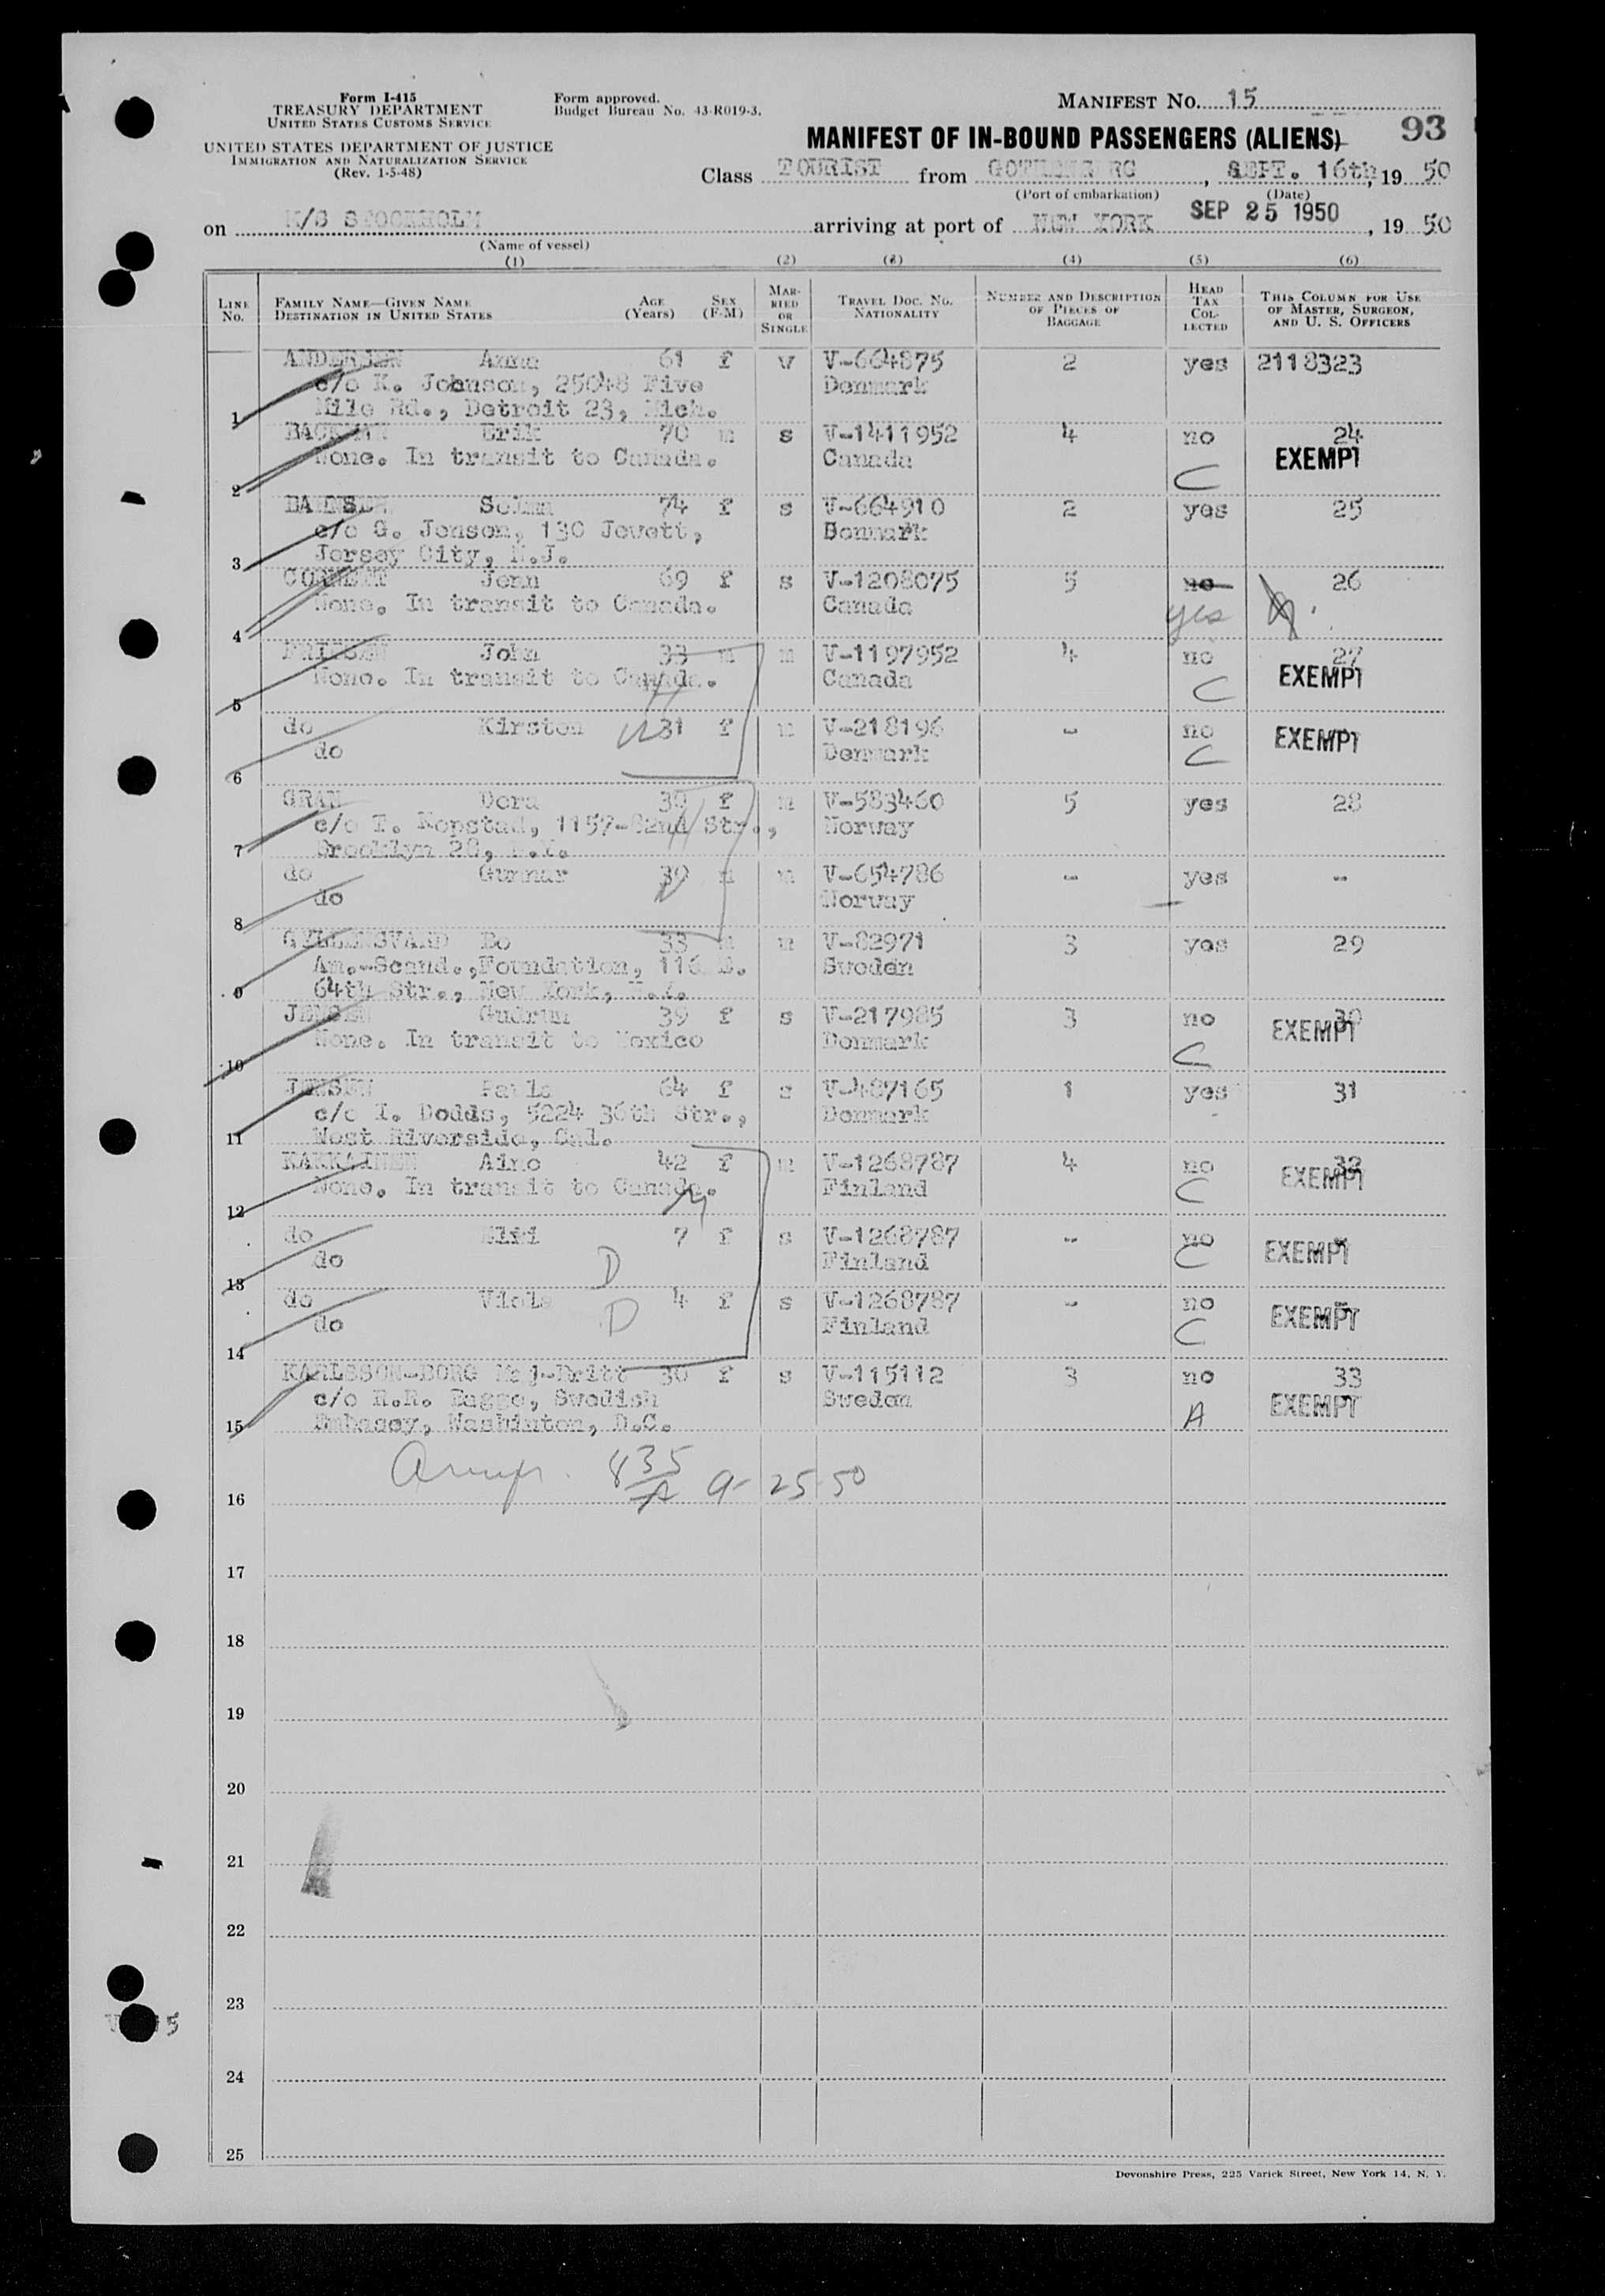 Form I-415
TREASURY DEPARTMENT
UNITED STATES CUSTOMS SERVICE
UNITED STATES DEPARTMENT OF JUSTICE
IMMIGRATION AND NATURALIZATION SERVICE
(Rev. 1-5-48)
Form approved.
Budget Bureau No. 43-R019-3.
MANIFEST NO. 15
93
MANIFEST OF IN-BOUND PASSENGERS (ALIENS)
Class TOURIST from GOTHENBURG, SEPT. 16th, 19 50
(Port of embarkation) (Date)
on M/S STOCKHOLM arriving at port of NEW YORK SEP 25 1950, 19 50
(Name of vessel)
(1) (2) (3) (4) (5) (6)
LINE No. FAMILY NAME—GIVEN NAME DESTINATION IN UNITED STATES AGE (Years) SEX (F-M) MARRIED OR SINGLE TRAVEL DOC. NO. NATIONALITY NUMBER AND DESCRIPTION OF PIECES OF BAGGAGE HEAD TAX COLLECTED THIS COLUMN FOR USE OF MASTER, SURGEON, AND U. S. OFFICERS
ANDERSEN Anna 61 f w V-664875 2 yes 2118323
c/o K. Johnson, 25048 Five Denmark
1 Mile Rd., Detroit 23, Mich.
BACKMAN Erik 70 m s V-1411952 4 no 24
None. In transit to Canada. Canada EXEMPT
2 C
Selma 74 f s V-664910 2 yes 25
c/o G. Jensen, 130 Jewett, Denmark
3 Jersey City, N.J.
CORNETT Jenn 69 f s V-1208075 5 no 26
None. In transit to Canada. Canada yes
4
FRIESEN John 33 m m V-1197952 4 no 27
None. In transit to Canada. Canada C EXEMPT
5
do Kirsten 31 f m V-218196 - no EXEMPT
do Denmark C
6
GRAN Dora 39 f m V-583460 5 yes 28
c/o T. Kopstad, 1157-82nd Str., Norway
7 Brooklyn 28, N.Y.
do Gunnar 39 m m V-654786 - yes -
do Norway
8
GYLLENSVARD Bo 33 m m V-82971 3 yes 29
Am.-Scand.,Foundation, 116 E. Sweden
9 64th Str., New York, N.Y.
JENSEN Gudrun 39 f s V-217985 3 no 30
None. In transit to Mexico Denmark EXEMPT
10 C
JENSEN Paula 64 f s V-487165 1 yes 31
c/o I. Dodds, 5224 36th Str., Denmark
11 West Riverside, Cal.
KAKKAINEN Aino 42 f m V-1268787 4 no 32
None. In transit to Canada. Finland C EXEMPT
12
do 7 f s V-1268787 - no -
do D Finland C EXEMPT
13
do Viola 4 f s V-1268787 - no -
do D Finland C EXEMPT
14
KARLSSON-BORG Maj-Britt 30 f s V-115112 3 no 33
c/o R.R. Bagge, Swedish Sweden EXEMPT
15 Embassy, Washinton, D.C. A
835 9-25-50
16
17
18
19
20
21
22
23
24
25
Devonshire Press, 225 Varick Street, New York 14, N. Y.